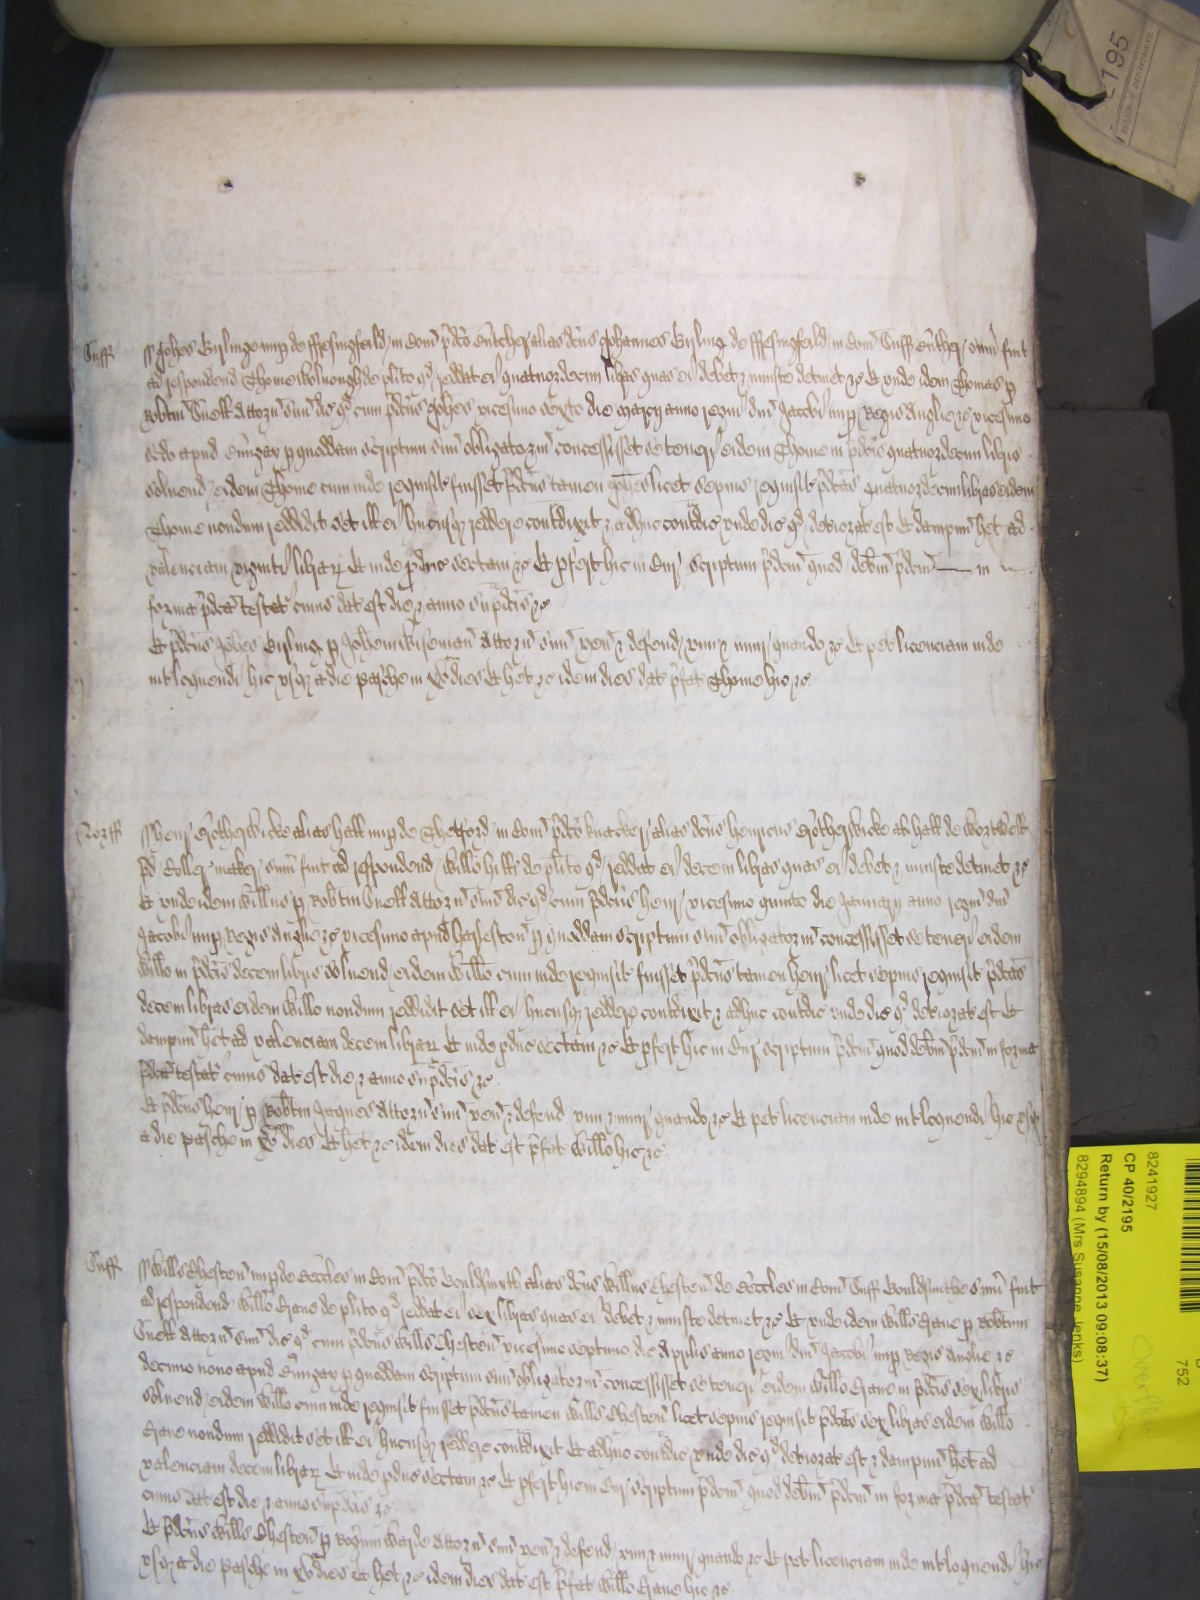 195
Suff
Johes Byslinge nup de Ffresingfeild in Com pdco Butcher alias dcus Johannes Bysling de ffresingfeild in Com Suff Butcher sum fuit
ad respondend Thome de plito qd reddat ei quatuordecim libras quas ei debet & iniuste detinet &c Et unde idem Thomas p
Robtum Snell attorn suu dic qd cum pdcus Johes vicesimo sexto die Marcij anno regni dni Jacobi nup Regis Anglie &c vicesimo
scdo apud Bungay p quoddam scriptum suu obligatoriu concessisset se teneri eidem Thome in pdcis quatuordecim libris
solvend eidem Thome cum inde requisit fuisset pdcus tamen Johes licet sepius requisit pdcas quatuordecim libras eidem
Thome nondum reddidit set ill ei hucusq reddere contdixit & adhuc contdic unde dic qd deteriorat est Et dampnu het ad
valenciam viginti librar Et inde pduc sectam &c Et pfert hic in Cur scriptum pdcm quod debitm pdcm in
forma pdca testat cuius dat est die & anno supdcis &c
Et pdcus Johes Bysling p Johem Wiseman attorn suu ven & defend vim & iniur quando &c Et pet licenciam inde
intloquendi hic usq a die pasche in xv dies Et het &c idem dies dat pfat Thome hic &c
Norff
Henr Motherwicke alias Hall nup de Thetford in Com pdco knacker alias dcus Henricus Motherwicke als Hall de Wortwell
pd Coller maker sum fuit ad respondend Willo Hill de plito qd reddat ei decem libras quas ei debet & iniuste detinet &c
Et unde idem Willus p Robtm Snell attorn suu dic qd cum pdcus Henr vicesimo quinto die Januarij anno regni dni
Jacobi nup Regis Anglie &c vicesimo apud Harleston p quoddam scriptum suu obligatoriu concessisset se teneri eidem
Willo in pdcis decem libris solvend eidem Willo cum inde requisit fuisset pdcus tamen Henr licet sepius requisit pdcas
decem libras eidem Willo nondum reddidit set ill ei hucusq reddere contdixit & adhuc contdic unde dic qd deteriorat est Et
dampnu het ad valenciam decem librar Et inde pduc sectam &c Et pfert hic in Cur scriptum pdcm quod debitm pdcm in forma
pdca testat cuius dat est die & anno supdcis &c
Et pdcus Henr p Robtm Jaques attorn suu ven & defend vim & iniur quando &c Et pet licenciam inde intloquendi hic usq
a die pasche in xv dies Et het &c idem dies dat est pfat Willo hic &c
Suff
Wills Cheston nup de Beccles in Com pdco Gouldsmyth alias dcus Willus Cheston de Beccles in Com Suff Gouldsmithe sum fuit
ad respondend Willo Crane de plito qd reddat ei sex libras quas ei debet & iniuste detinet &c Et unde idem Wills Crane p Robtum
Snell attorn suu dic qd cum pdcus Wills Cheston vicesimo septimo die Aprilis anno regni dni Jacobi nup Regis Anglie &c
decimo nono apud Bungay p quoddam scriptum suu obligatoriu concessisset se teneri eidem Willo Crane in pdcis sex libris
solvend eidem Willo cum inde requisit fuisset pdcus tamen Wills Cheston licet sepius requisit pdcas sex libras eidem Willo
Crane nondum reddidit set ill ei hucusq reddere contdixit Et adhuc contdic unde dic qd deteriorat est & dampnu het ad
valenciam decem librar Et inde pduc sectam &c Et pfert hic in Cur scriptum pdcm quod debitm pdcm in forma pdca testat
cuius dat est die & anno supdcis &c
Et pdcus Wills Cheston p attorn suu ven & defend vim & iniur quando &c Et pet licenciam inde intloquendi hic
usq a die pasche in xv dies Et het &c idem dies dat est pfat Willo Crane hic &c
8241927
CP 40/2195
Return by (15/08/2013 09:08:37)
8294894 (Mrs Susanne Jenks)
752